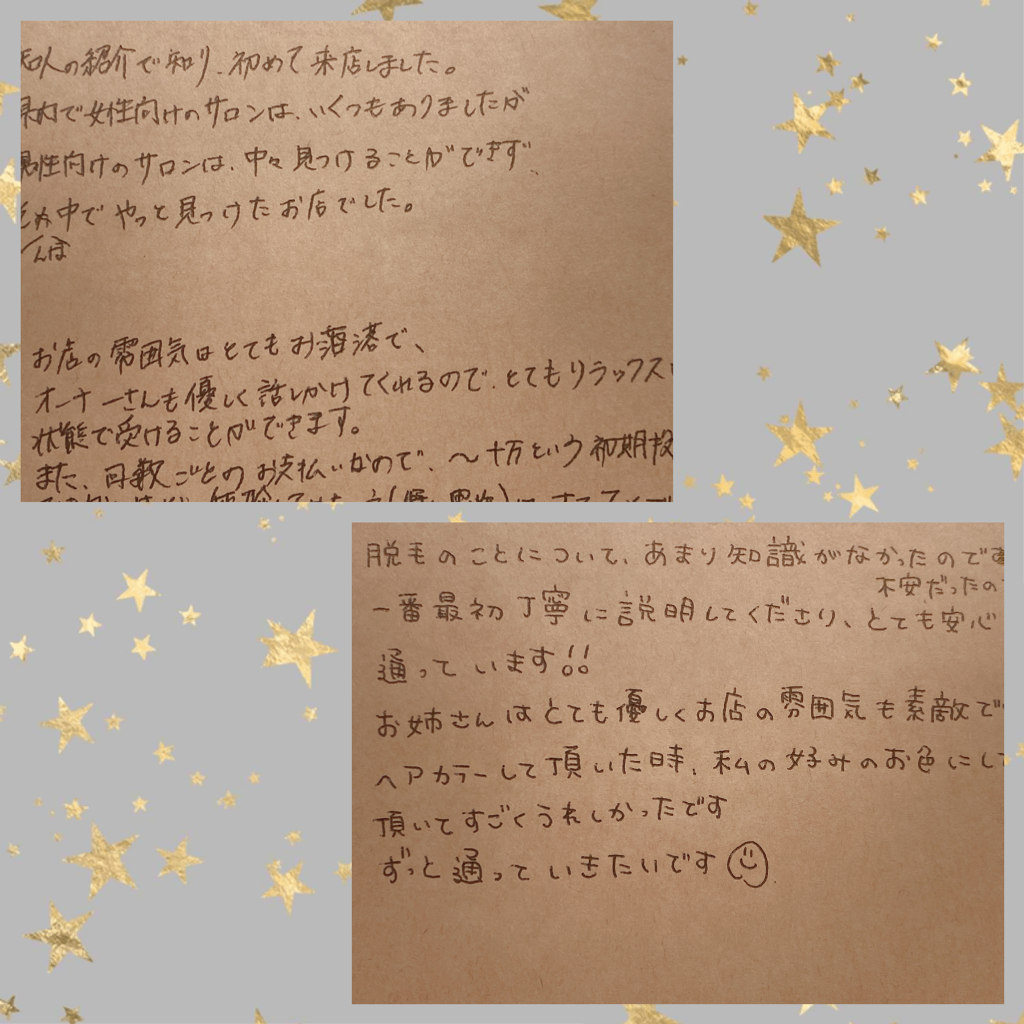 知人の紹介で知り、初めて来店しました。
県内で女性向けのサロンは、いくつもありましたが
男性向けのサロンは、中々見つけることができず、
中でやっと見つけたお店でした。
お店の雰囲気はとてもお洒落で、
オーナーさんも優しく話しかけてくれるので、とてもリラックス
状態で受けることができます。
また、回数ごとのお支払いなので、〜十万という初期投
脱毛のことについて、あまり知識がなかったのです
不安だったの
一番最初丁寧に説明してくださり、とても安心
通っています!!
お姉さんはとても優しくお店の雰囲気も素敵で
ヘアカラーして頂いた時、私の好みのお色にして
頂いてすごくうれしかったです
ずっと通っていきたいです